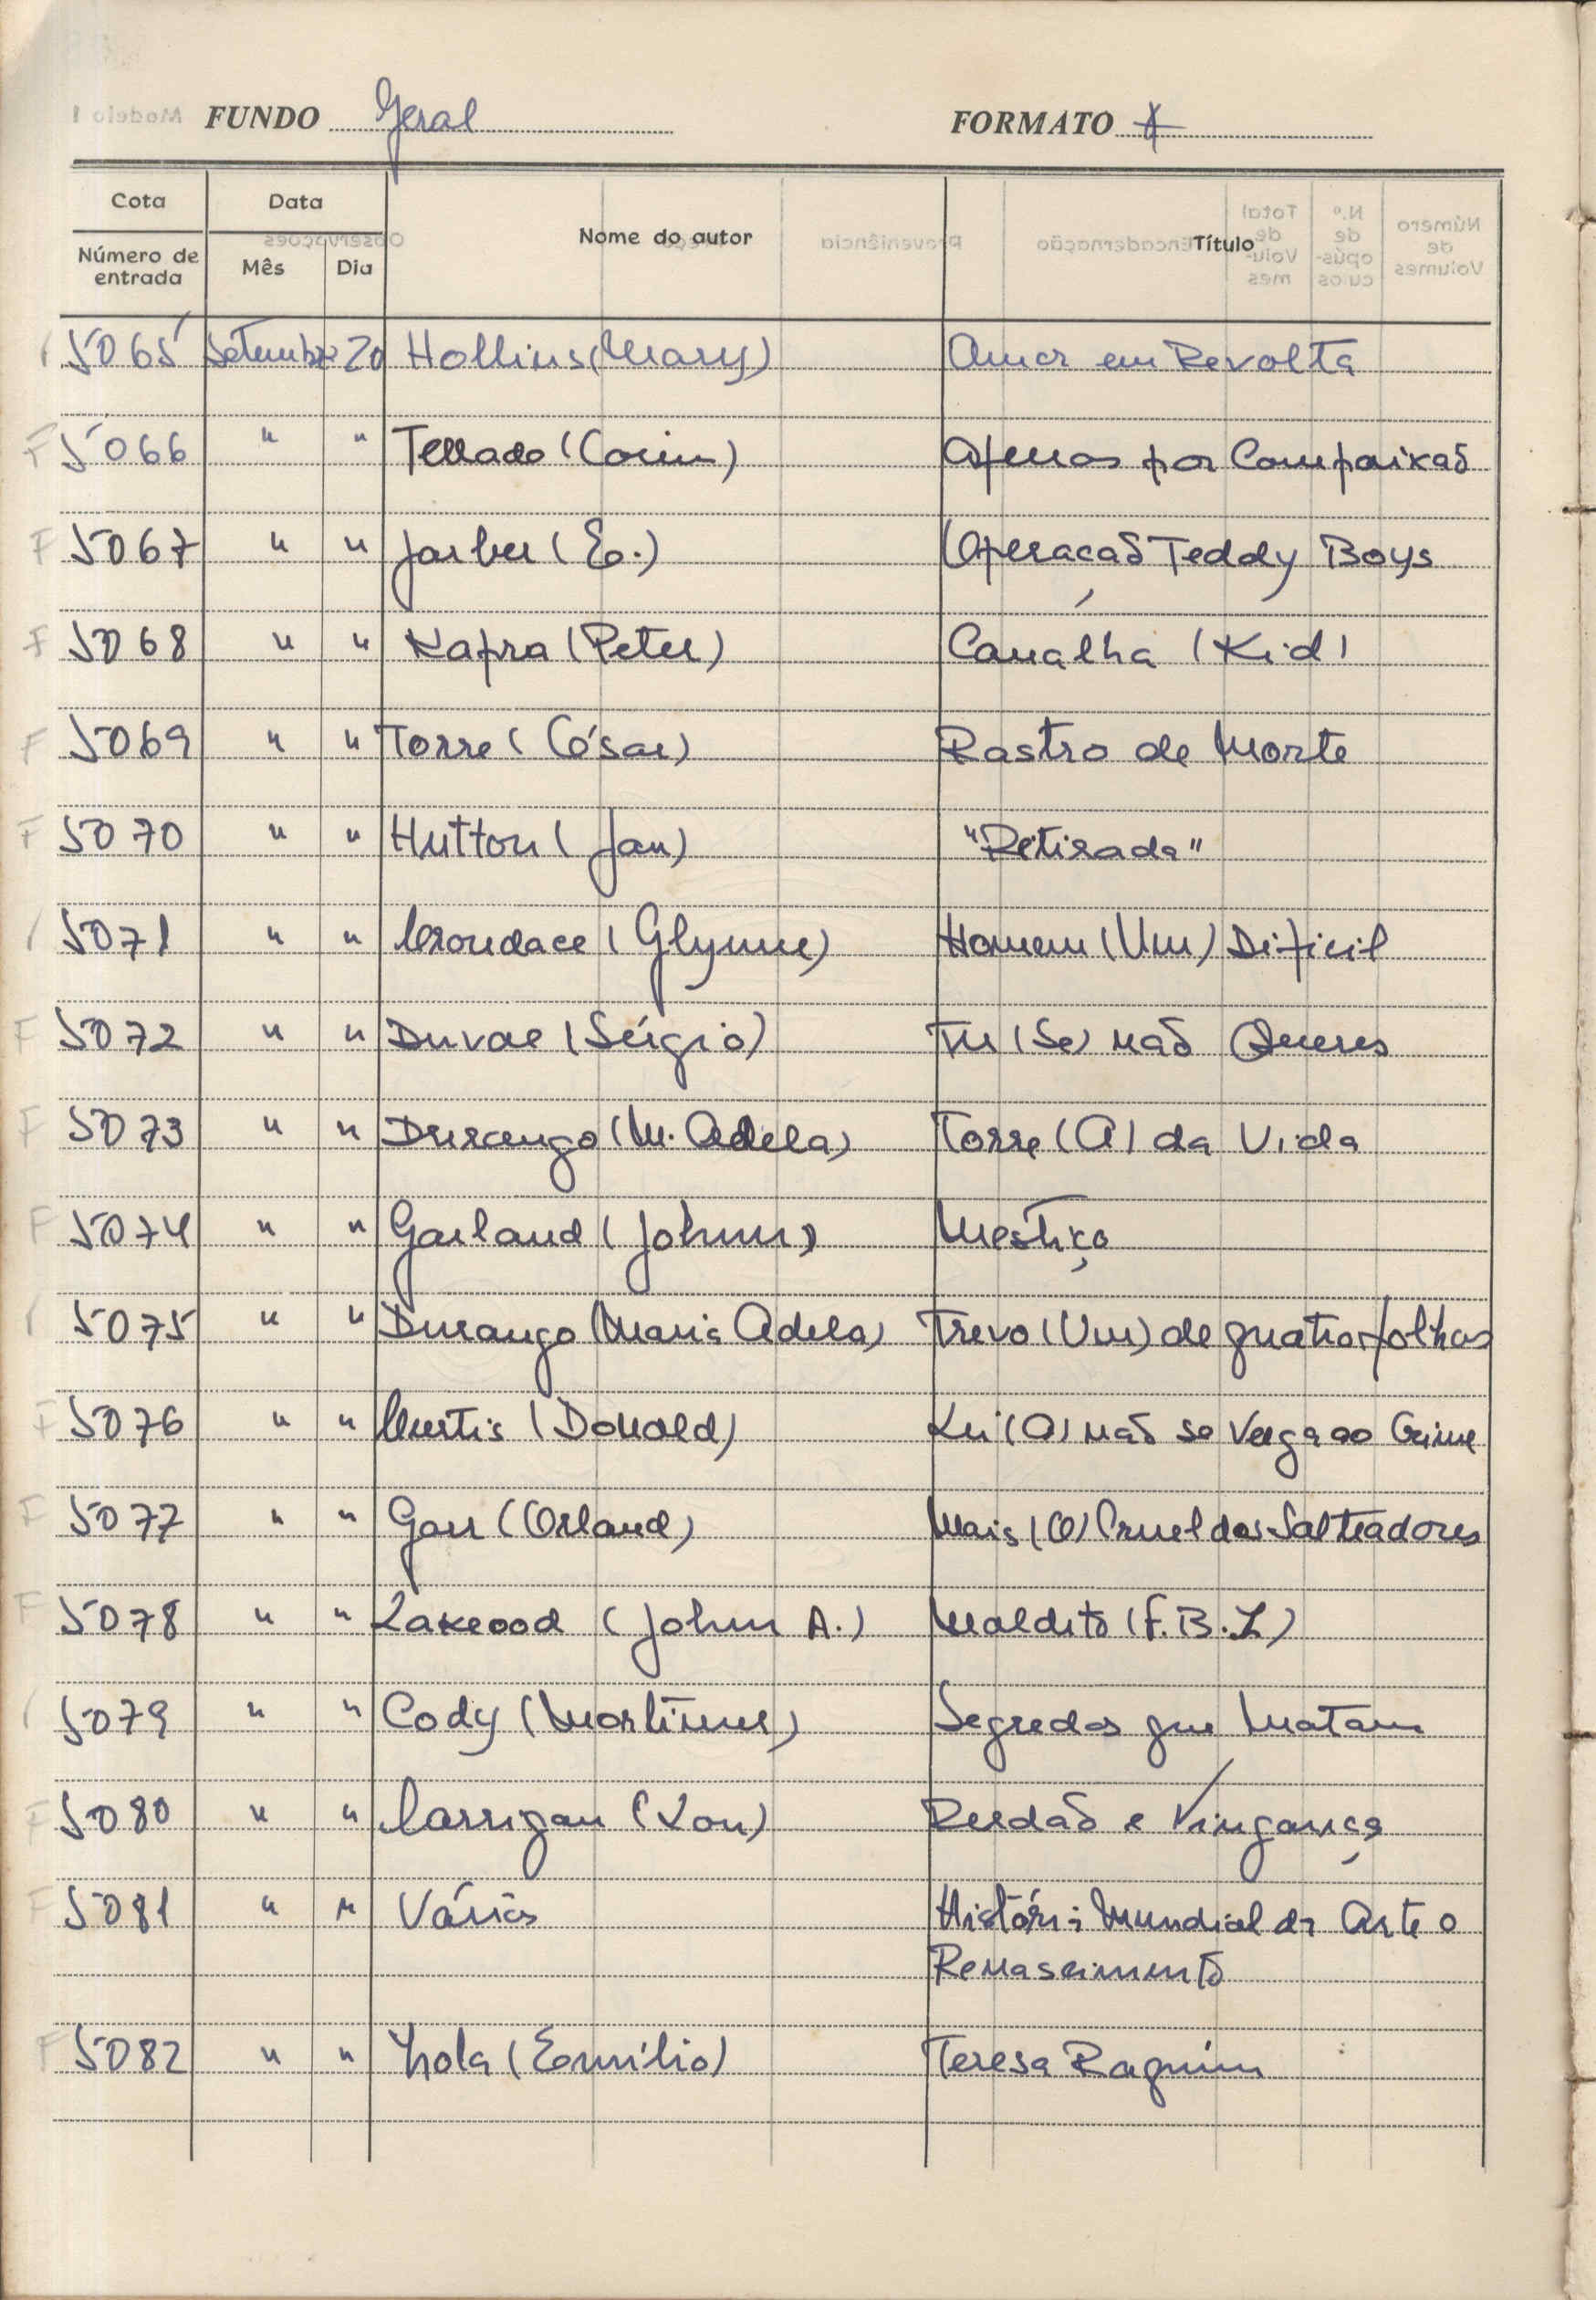 FUNDO Geral FORMATO
Cota Data Nome do autor Título
Número de entrada Mês Dia
5065 Setembro 20 Hollins (Mary) Amor em Revolta
F 5066 " " Tellado (Corin) Apenas por Compaixão
F 5067 " " Jarber (E.) Operação Teddy Boys
F 5068 " " Kapra (Peter) Canalha (Kid)
F 5069 " " Torre (César) Rastro de Morte
F 5070 " " Hutton (Jan) "Retirada"
5071 " " Croudace (Glynne) Homem (Um) Dificil
F 5072 " " Duval (Sérgio) Tu (Se) não Queres
F 5073 " " Durango (M. Adela) Torre (A) da Vida
F 5074 " " Garland (Johnn) Mestiço
5075 " " Durango (Maria Adela) Trevo (Um) de quatro folhas
F 5076 " " Curtis (Donald) Lei (A) não se Verga ao Crime
F 5077 " " Garr (Orland) Mais (O) Cruel dos Salteadores
F 5078 " " Lakeood (John A.) Maldito (F.B.I.)
5079 " " Cody (Mortimer) Segredos que Matam
F 5080 " " Carrigan (Lou) Perdão e Vingança
F 5081 " " Vários História Mundial da Arte o
Renascimento
F 5082 " " Zola (Emílio) Teresa Raquim